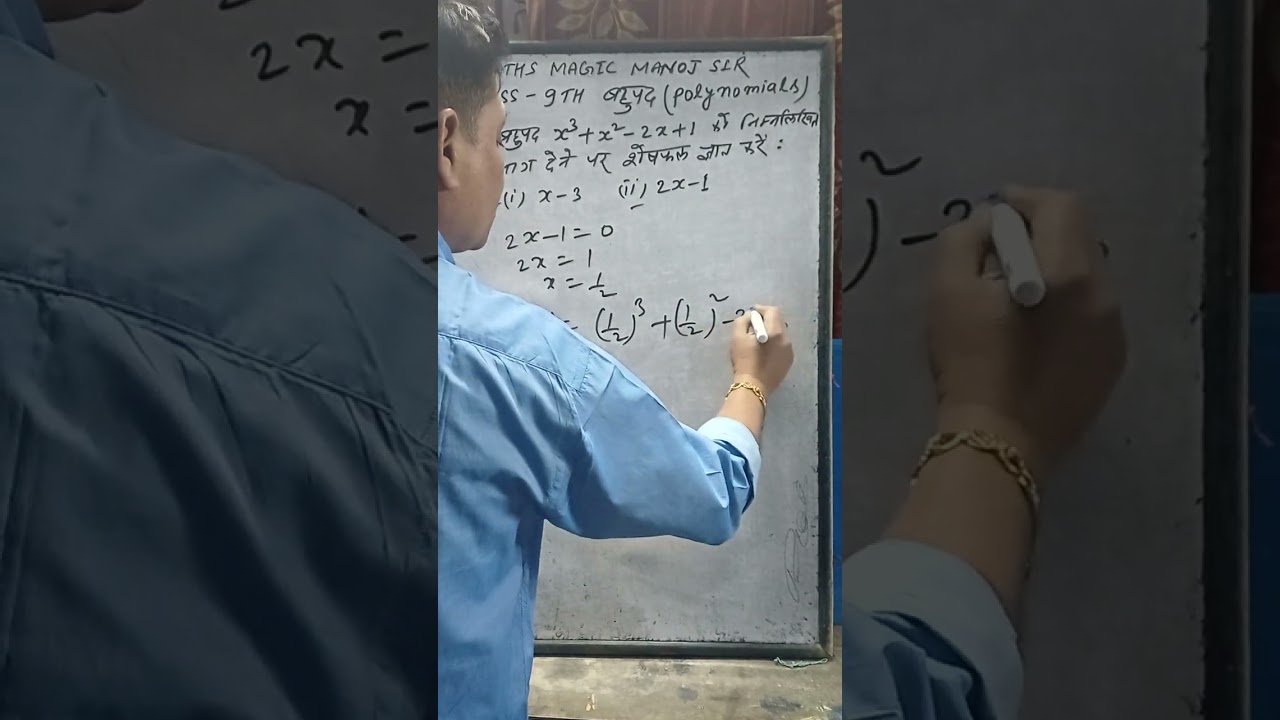 THS MAGIC MANOJ SIR
SS - 9TH बहुपद (polynomials)
बहुपद x³ + x² - 2x + 1 को निम्नलिखित
देने पर शेषफल ज्ञात करें :
(i) x - 3 (ii) 2x - 1
2x - 1 = 0
2x = 1
x = 1/2
= (1/2)³ + (1/2)² -